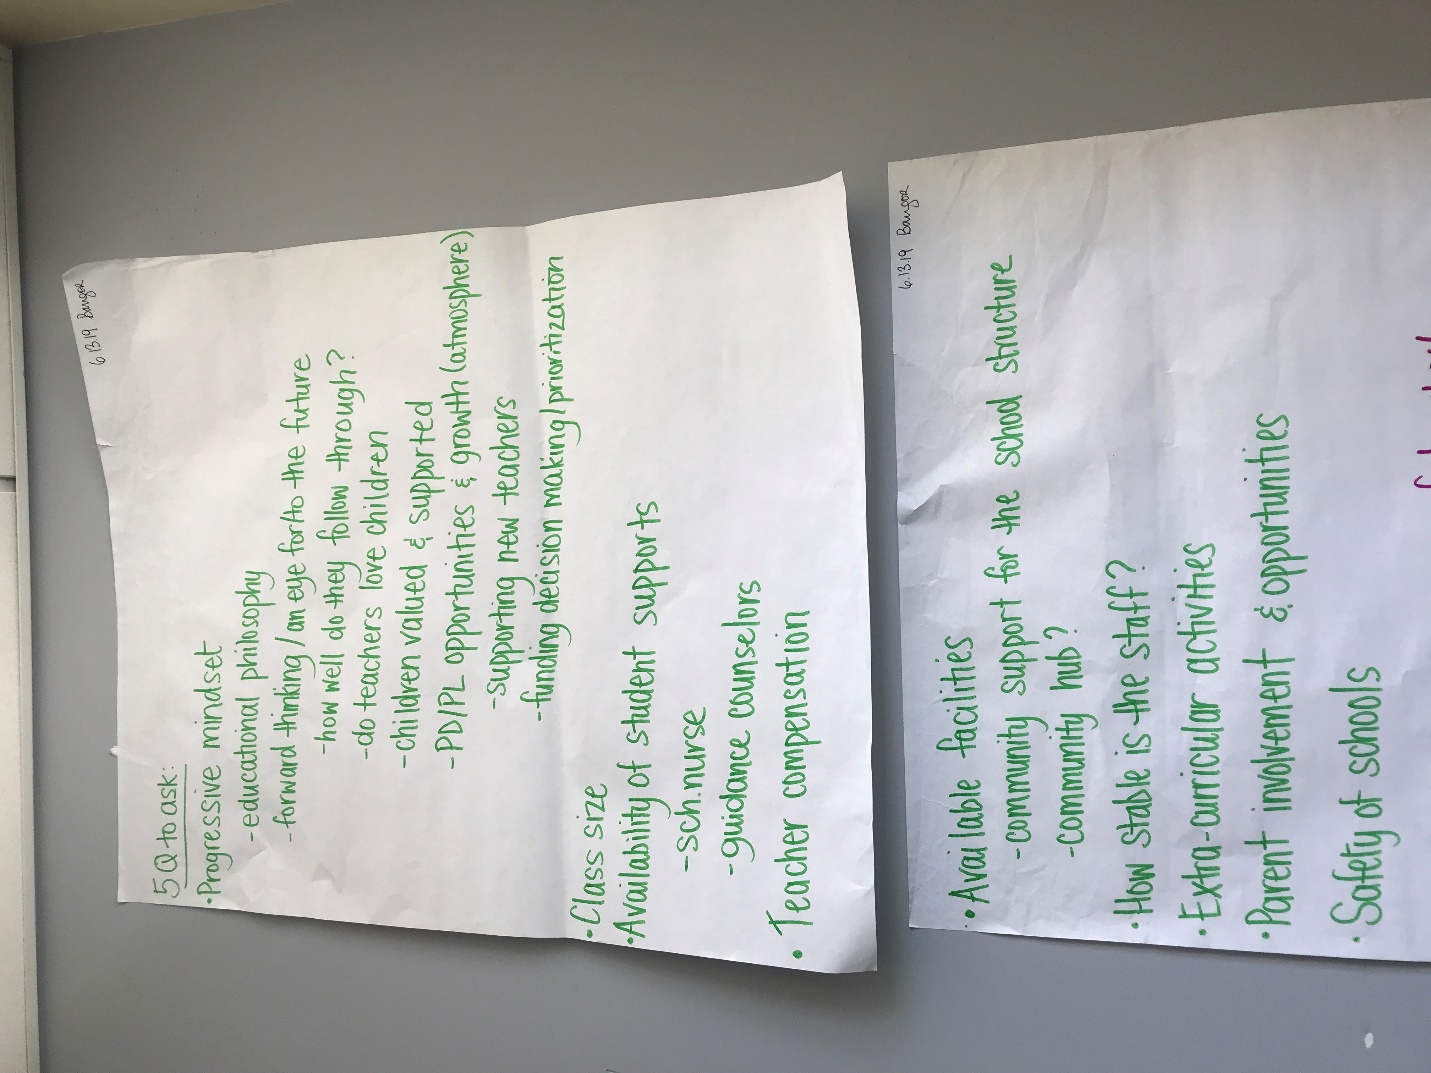 6.13.19 Bangor
5 Q to ask:
• Progressive mindset
- educational philosophy
- forward thinking / an eye for/to the future
- how well do they follow through?
- do teachers love children
- children valued & supported
- PD/PL opportunities & growth (atmosphere)
- supporting new teachers
- funding decision making / prioritization
• Class size
• Availability of student supports
- sch. nurse
- guidance counselors
• Teacher compensation
6.13.19 Bangor
• Available facilities
- community support for the school structure
- community hub?
• How stable is the staff?
• Extra-curricular activities
• Parent involvement & opportunities
• Safety of schools